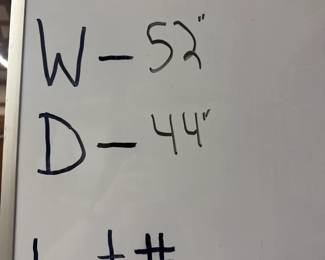 W - 52"
D - 44"